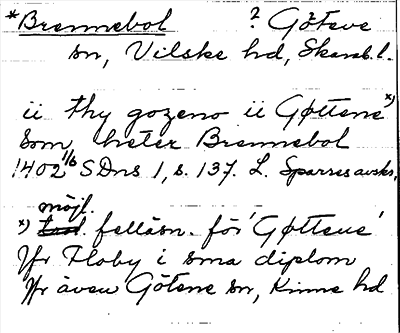 *Brennebol ? Göteve
sn, Vilske hd, Skarab. l.
ii thy gozeno ii Gøttene x)
Som heter Brennebol
1402 1/6 SDns 1, s. 137. L. Sparres avskr.
möjl.
x) felläsn. för 'Gøtteue'
Jfr Floby i sma diplom
Jfr även Götene sn, Kinne hd